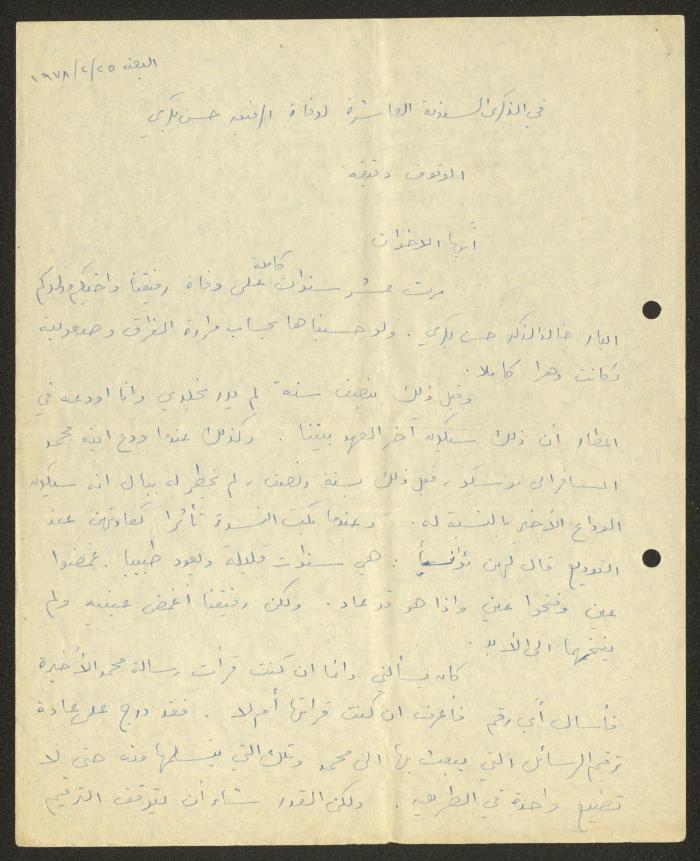 البعنه ٢٥/٢/١٩٧٨
في الذكرى السنوية العاشرة لوفاة الرفيق حسن بكري
الوقوف دقيقة
أيها الاخوان
مرت عشر سنوات كاملة على وفاة رفيقنا واخيكم وولدكم
البار خالد الذكر حسن بكري . ولو حسبناها بحساب مرارة الفراق وصعوبته
لكانت دهرا كاملا .
وقبل ذلك بنصف سنة لم يدر بخلدي وانا اودعه في
المطار ان ذلك سيكون آخر العهد بيننا . وكذلك عندما ودع ابنه محمد
المسافر الى موسكو ، قبل ذلك بسنة ونصف ، لم يخطر له ببال انه سيكون
الوداع الأخير بالنسبة له . وعندما بكت النسوة تأثرا كعادتهن عند
التوديع قال لهن : هي سنوات قليلة ويعود طبيبا . غمضوا
عين وفتحوا عين واذا هو قد عاد . ولكن رفيقنا أغمض عينيه ولم
يفتحهما الى الأبد .
كان يسألني دائما ان كنت قرأت رسالة محمد الأخيرة
فأسأل أي رقم فأعرف ان كنت قرأتها أم لا . فقد درج على عادة
ترقيم الرسائل التي يبعث بها الى محمد وتلك التي يتسلمها منه حتى لا
تضيع واحدة في الطريق . ولكن القدر شاء أن يتوقف الترقيم